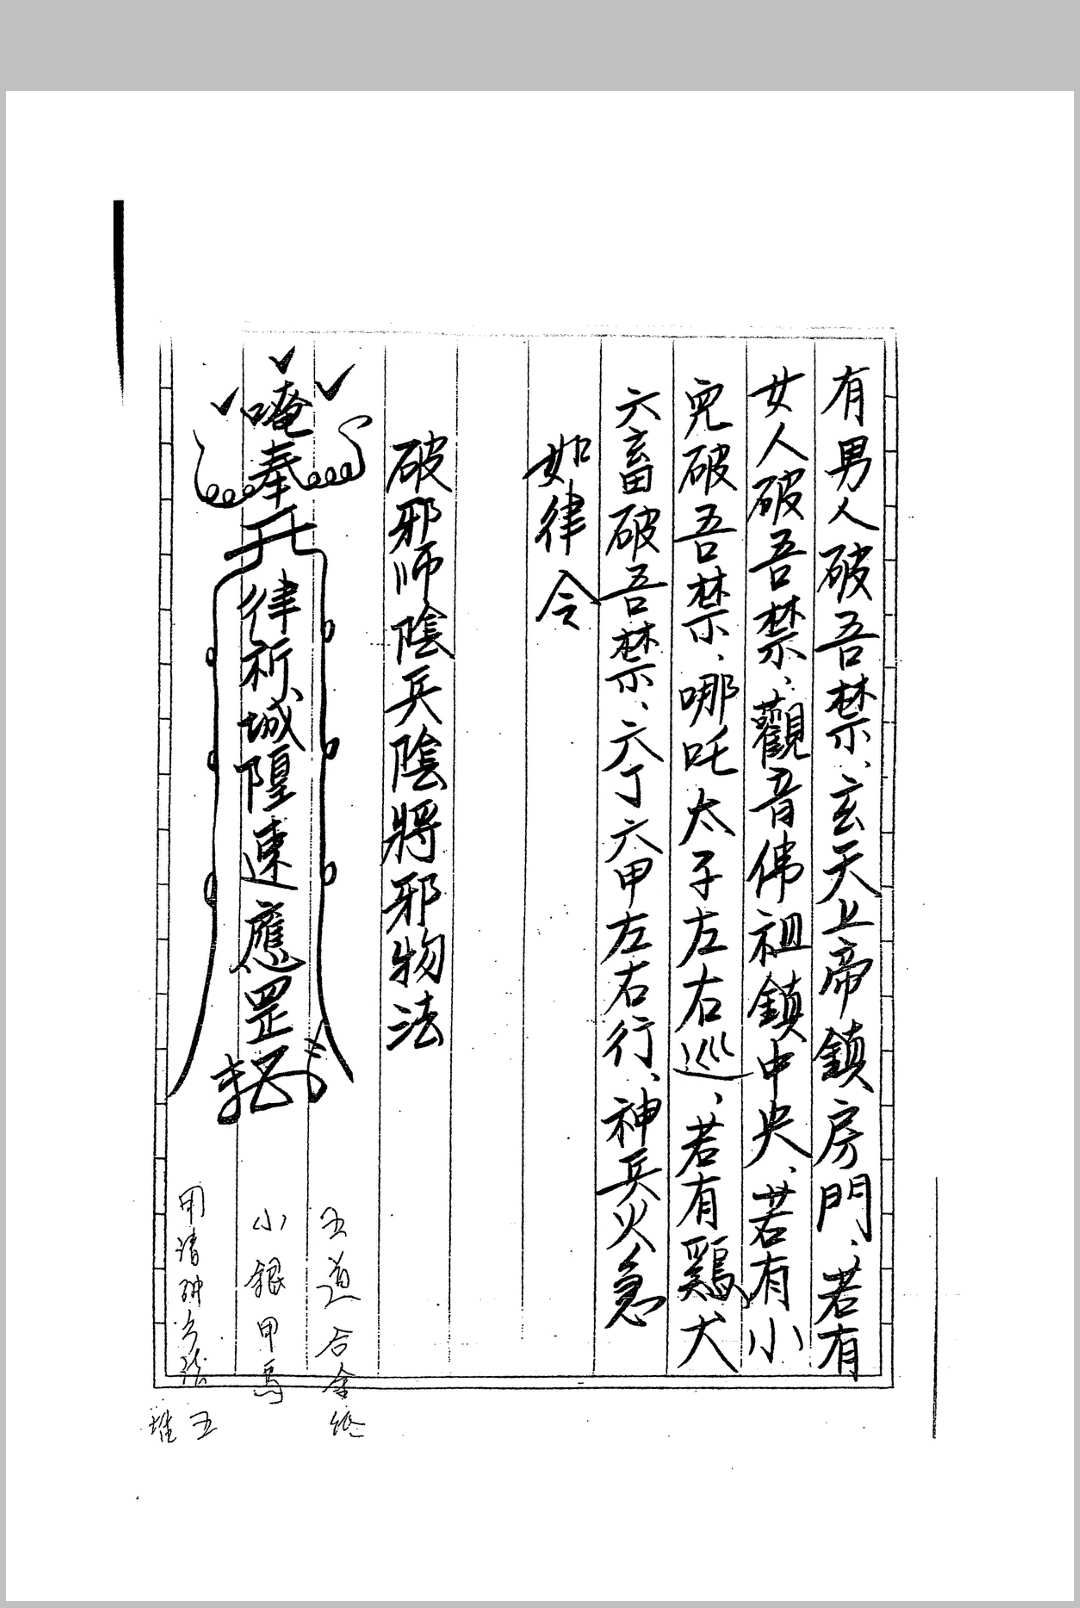 有男人破吾禁、玄天上帝鎮房門、若有
女人破吾禁、觀音佛祖鎮中央、若有小
兒破吾禁、哪吒太子左右巡、若有鷄犬
六畜破吾禁、六丁六甲左右行、神兵火急
如律令
破邪師陰兵陰將邪物法
唵奉
律祈城隍速應罡
五道合金紙
小銀甲馬
用請神
五
堆